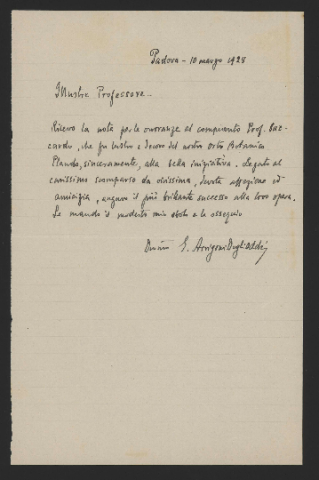 Padova - 10 marzo 1928
Illustre Professore -
Ricevo la nota per le onoranze al compianto Prof. Sac-
cardo, che fu lustro e decoro del nostro Orto Botanico
Plaudo, sinceramente, alla bella iniziativa. Legato al
carissimo scomparso da vivissima, devota affezione ed
amicizia, auguro il più brillante successo alla loro opera.
Le mando il modesto mio obolo e la ossequio
E. Arrigoni Degli Oddi